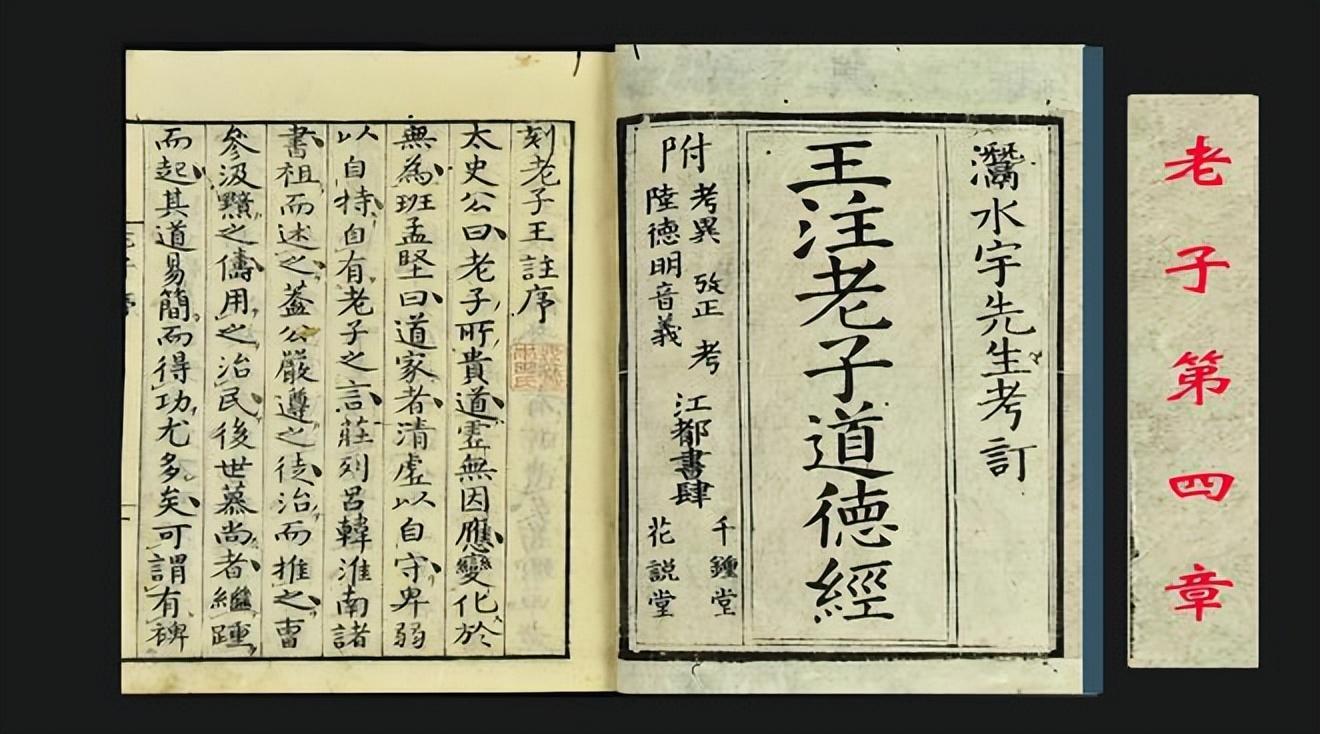 老子第四章
灊水宇先生考訂
王注老子道德經
附
考異 攷正 考
陸德明音義
江都書肆
千鍾堂
花説堂
刻老子王註序
太史公曰老子所貴道虛無因應變化於
無為班孟堅曰道家者清虛以自守卑弱
以自持自有老子之言莊列呂韓淮南諸
書祖而述之蓋公嚴遵之徒治而推之曹
參汲黯之儔用之治民後世慕尚者繼踵
而起其道易簡而得功尤多矣可謂有裨